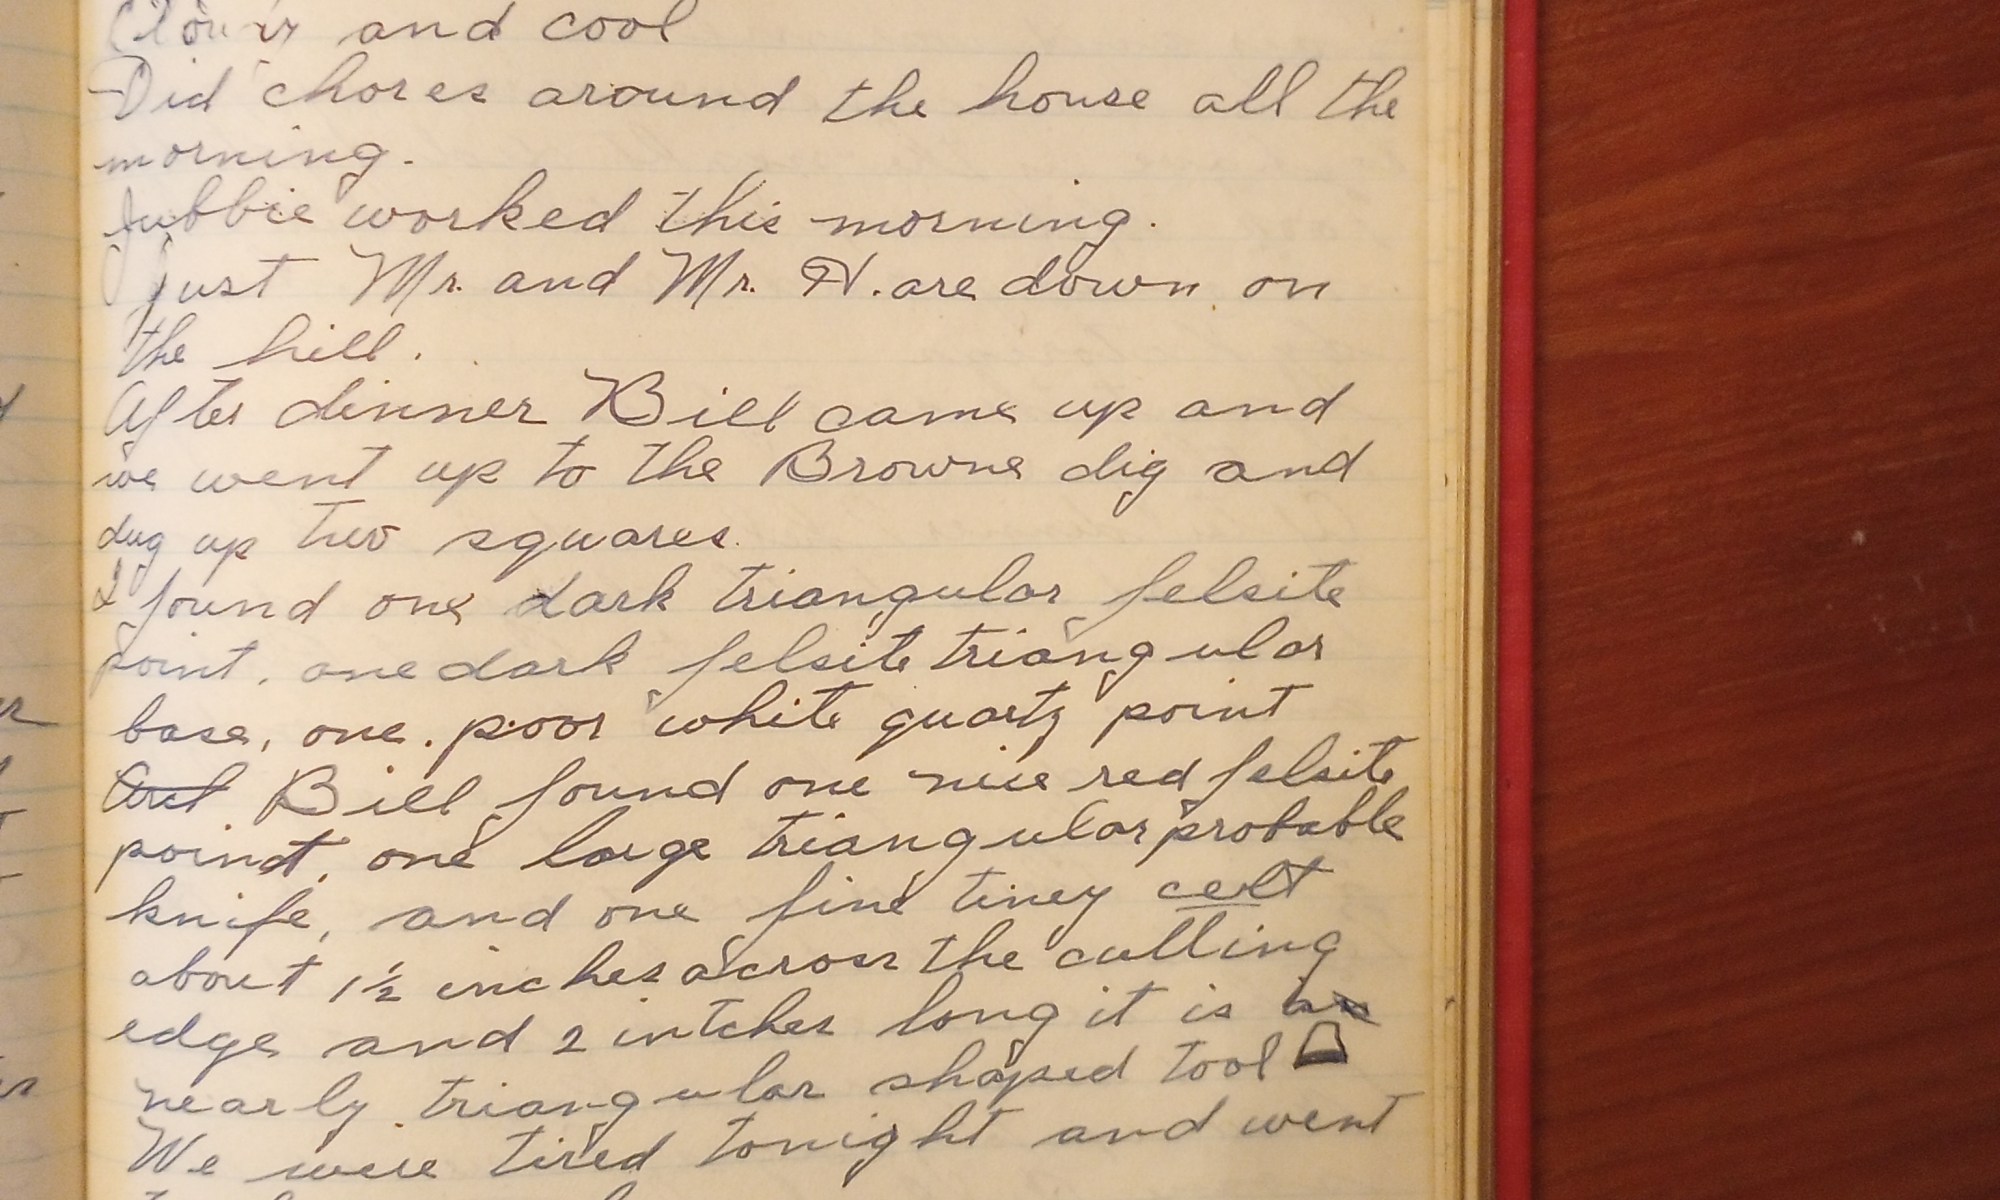 and cool
Did chores around the house all the
morning.
worked this morning.
Just Mr. and Mr. H. are down on
the hill.
After dinner Bill came up and
we went up to the Browne dig and
dug up two squares.
I found one dark triangular felsite
point, one dark felsite triangular
base, one poor white quartz point
And Bill found one nice red felsite
point, one large triangular probable
knife, and one fine tiney celt
about 1½ inches across the cutting
edge and 2 intches long it is
nearly triangular shaped tool
We were tired tonight and went